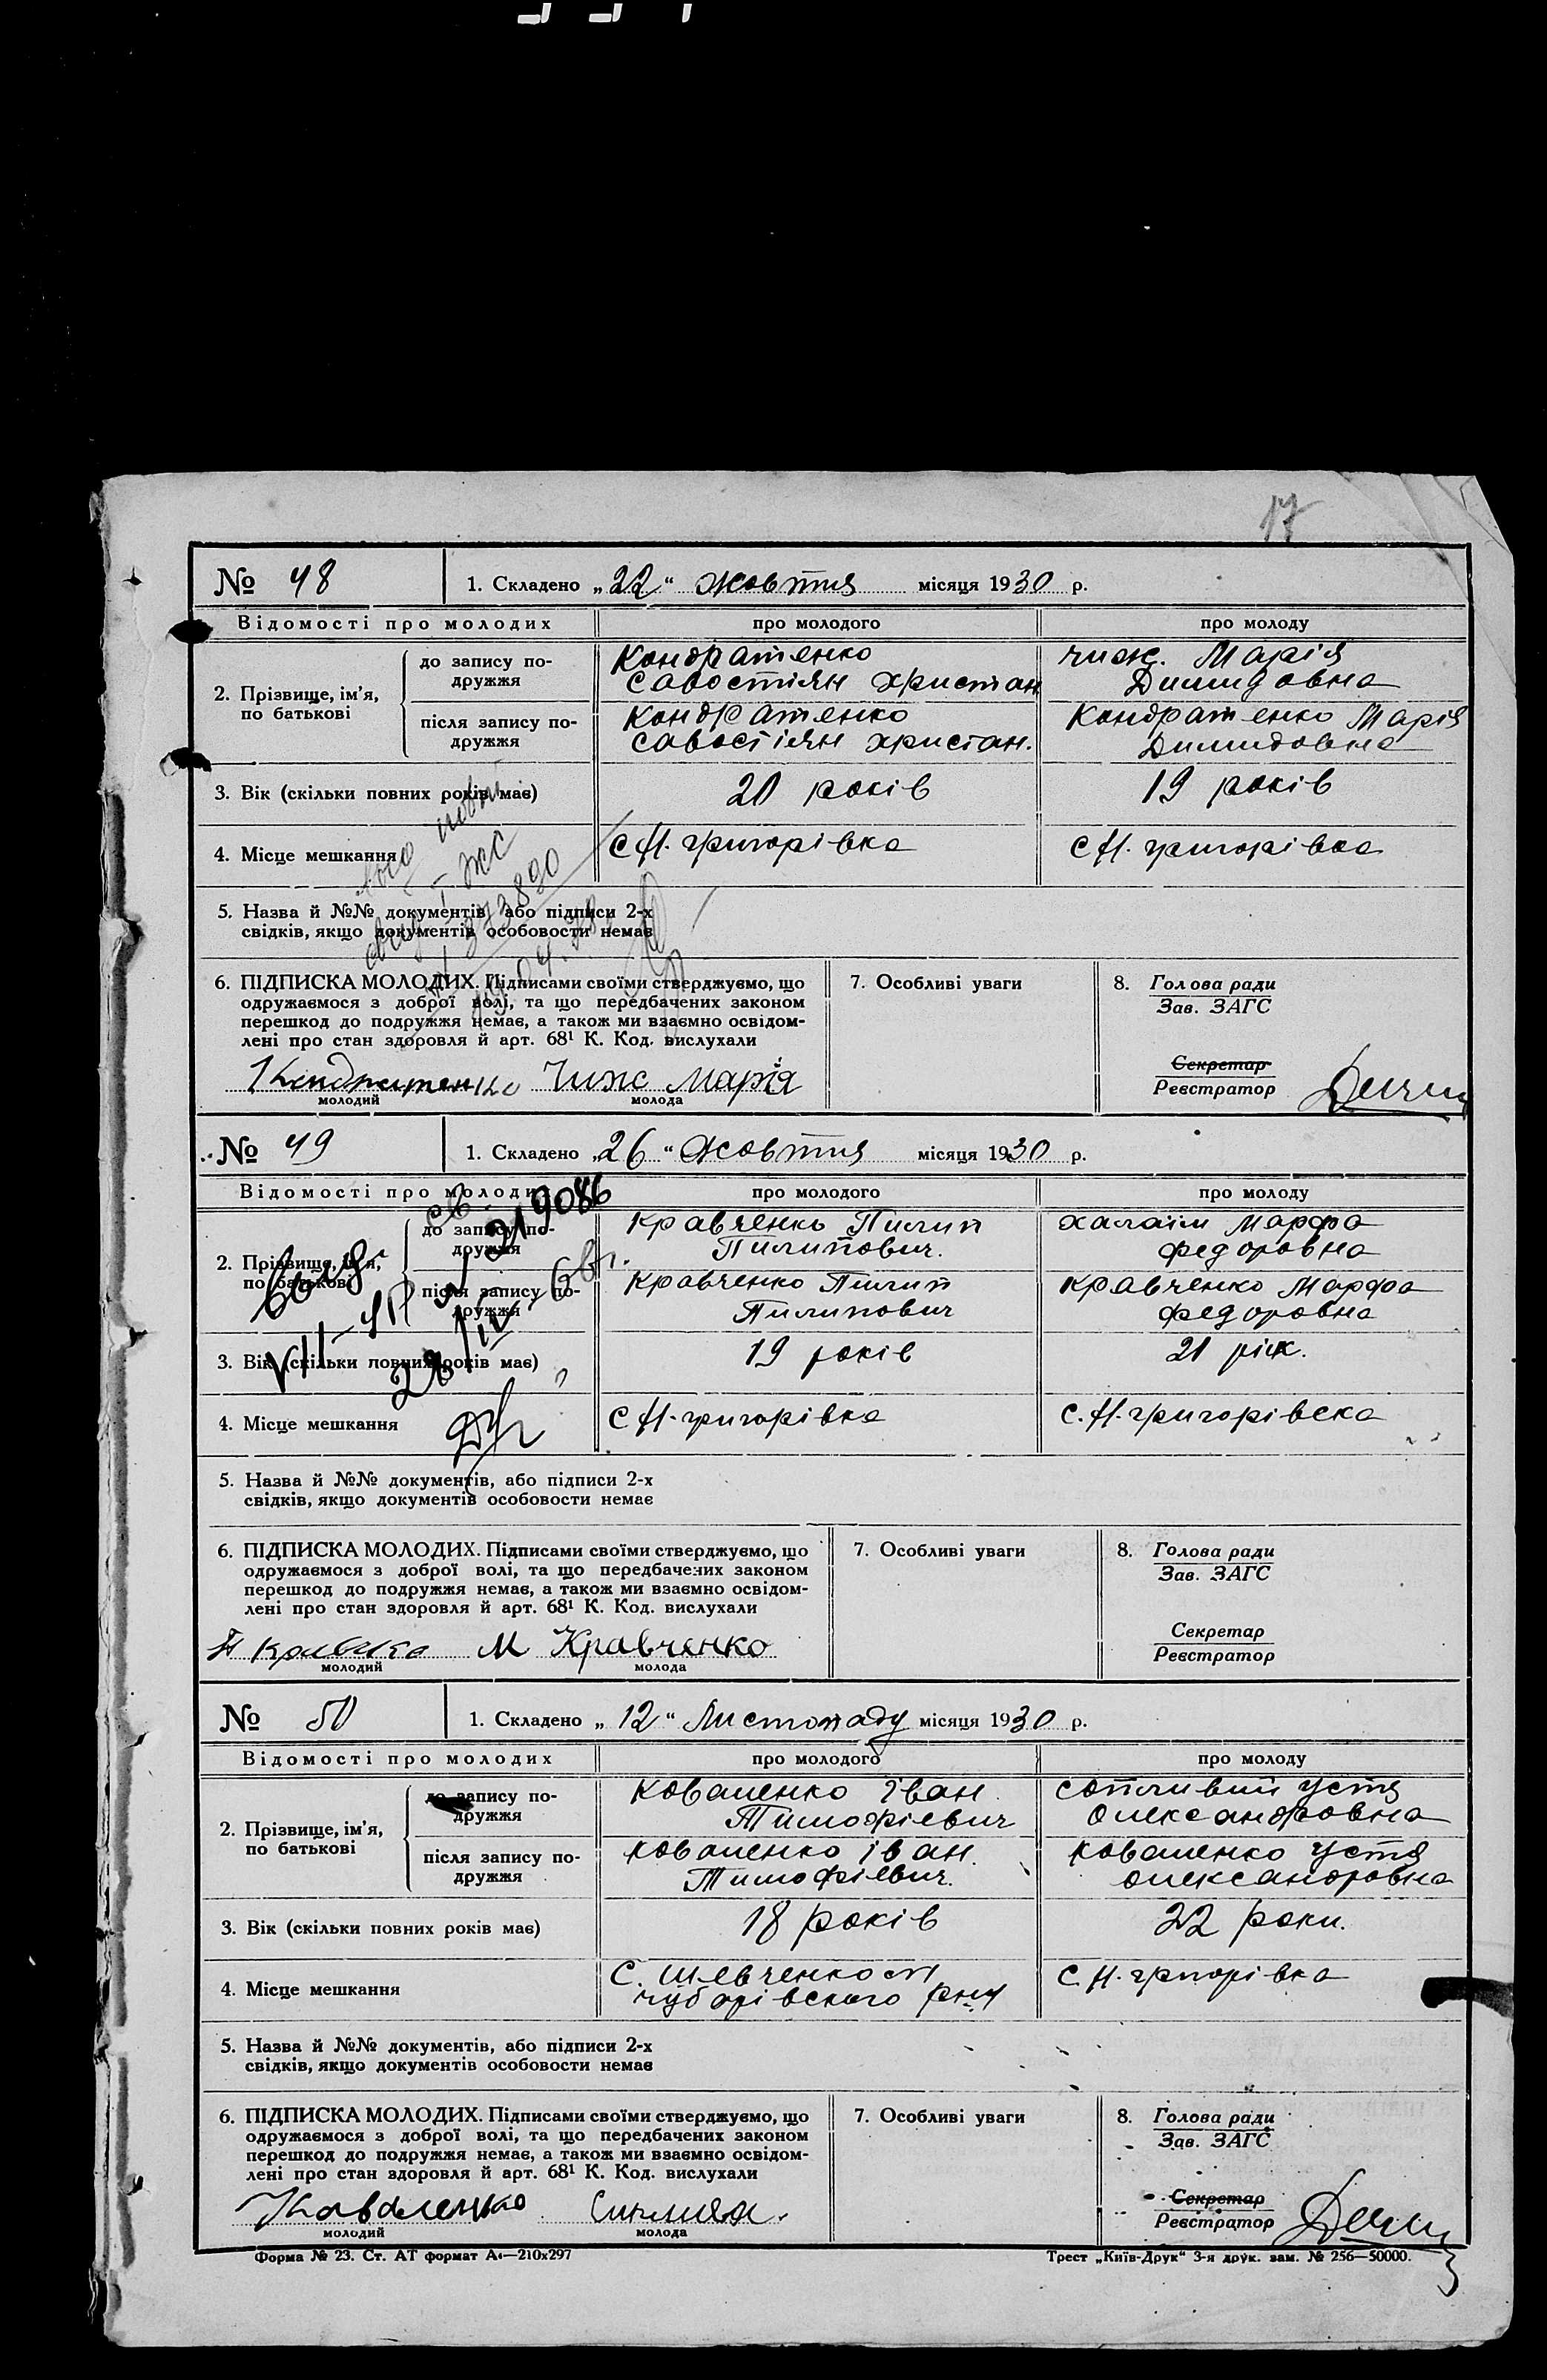 17
№ 48 1. Складено „22“ жовтня місяця 1930 р.
Відомості про молодих про молодого про молоду
2. Прізвище, ім'я, по батькові
до запису подружжя
Кондратенко
Савостіян христан
чиж. Марія
Димидовна
після запису подружжя
Кондратенко
Савостіян христан.
Кондратенко Марія
Димидовна
3. Вік (скільки повних років має) 20 років 19 років
4. Місце мешкання с Н. григорівка с Н. григорівка
5. Назва й №№ документів, або підписи 2-х
свідків, якщо документів особовости немає
6. ПІДПИСКА МОЛОДИХ. Підписами своїми стверджуємо, що
одружаємося з доброї волі, та що передбачених законом
перешкод до подружжя немає, а також ми взаємно освідом-
лені про стан здоровля й арт. 68¹ К. Код. вислухали
Кондратенко Чижс Марія
молодий молода
7. Особливі уваги
8. Голова ради
Зав. ЗАГС
Секретар
Реєстратор
№ 49 1. Складено „26“ жовтня місяця 1930 р.
Відомості про молодих про молодого про молоду
2. Прізвище, ім'я, по батькові
до запису подружжя
Кравченко Пилип
Пилипович.
халаім марфа
федоровна
після запису подружжя
Кравченко Пилип
Пилипович
Кравченко Марфа
федоровна
3. Вік (скільки повних років має) 19 років 21 рік.
4. Місце мешкання с Н. григорівка с. Н. григорівска
5. Назва й №№ документів, або підписи 2-х
свідків, якщо документів особовости немає
6. ПІДПИСКА МОЛОДИХ. Підписами своїми стверджуємо, що
одружаємося з доброї волі, та що передбачених законом
перешкод до подружжя немає, а також ми взаємно освідом-
лені про стан здоровля й арт. 68¹ К. Код. вислухали
М Кравченко
молодий молода
7. Особливі уваги
8. Голова ради
Зав. ЗАГС
Секретар
Реєстратор
№ 50 1. Складено „12“ Листопаду місяця 1930 р.
Відомості про молодих про молодого про молоду
2. Прізвище, ім'я, по батькові
до запису подружжя
Коваленко Іван
Тимофіевич
сотливий устя
Олександровна
після запису подружжя
Коваленко Іван.
Тимофіевич.
Коваленко устя
олександровна
3. Вік (скільки повних років має) 18 років 22 роки.
4. Місце мешкання
с. Шевченко
чубарівського рну
с. Н. григорівка
5. Назва й №№ документів, або підписи 2-х
свідків, якщо документів особовости немає
6. ПІДПИСКА МОЛОДИХ. Підписами своїми стверджуємо, що
одружаємося з доброї волі, та що передбачених законом
перешкод до подружжя немає, а також ми взаємно освідом-
лені про стан здоровля й арт. 68¹ К. Код. вислухали
Коваленко
молодий молода
7. Особливі уваги
8. Голова ради
Зав. ЗАГС
Секретар
Реєстратор
Форма № 23. Ст. АТ формат А4—210x297 Трест „Київ-Друк“ 3-я друк. зам. № 256—50000.